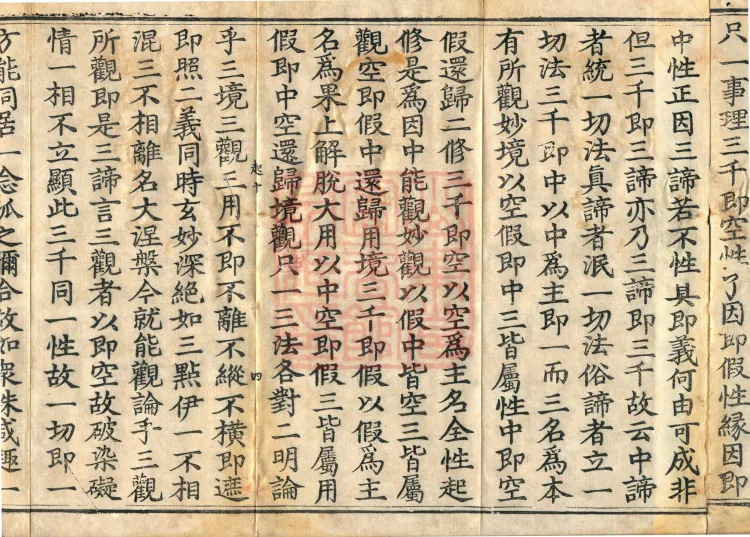 只一事理三千即空性了因即假性緣因即
中性正因三諦若不性具即義何由可成非
但三千即三諦亦乃三諦即三千故云中諦
者統一切法真諦者泯一切法俗諦者立一
切法三千即中以中為主即一而三名為本
有所觀妙境以空假即中三皆屬性中即空
假還歸二修三千即空以空為主名全性起
修是為因中能觀妙觀以假中皆空三皆屬
觀空即假中還歸用境三千即假以假為主
名為果上解脫大用以中空即假三皆屬用
假即中空還歸境觀只一三法各對二明論
起十
四
乎三境三觀三用不即不離不縱不橫即遮
即照二義同時玄妙深絕如三點伊一不相
混三不相離名大涅槃今就能觀論乎三觀
所觀即是三諦言三觀者以即空故破染礙
情一相不立顯此三千同一性故一切即一
方能同居一念